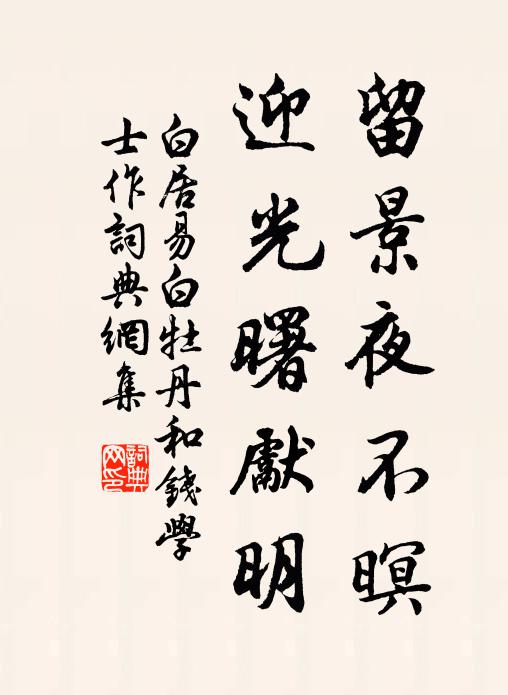 留景夜不暝
迎光曙獻明
白居易白牡丹和錢學
士作詞典網集
詞典
网印